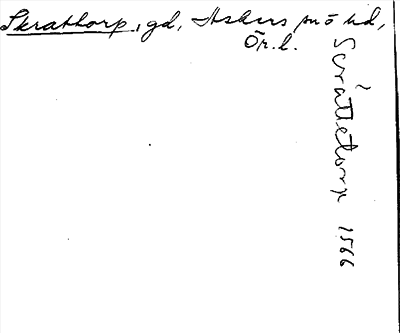 Skrattorp, gd, Askers sn ö hd,
Ör. l.
Scrättetorp 1566